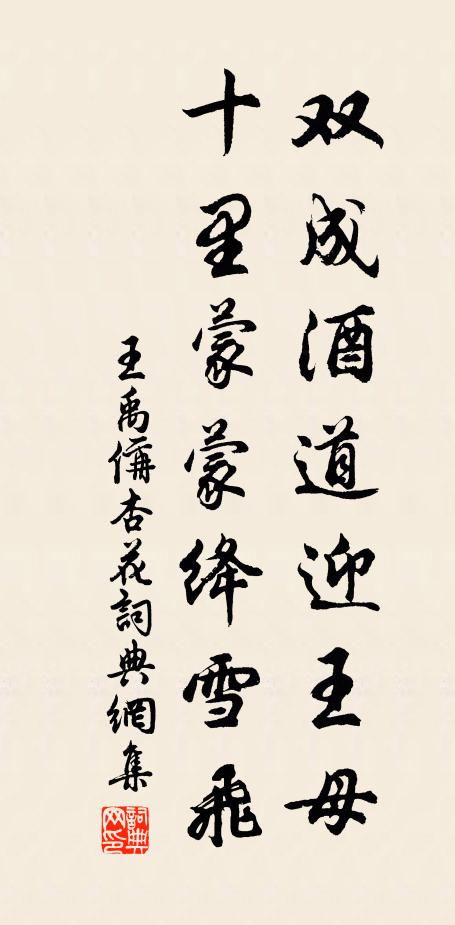 双成酒道迎王母
十里蒙蒙绛雪飛
王禹偁杏花詞典網集
詞典網印